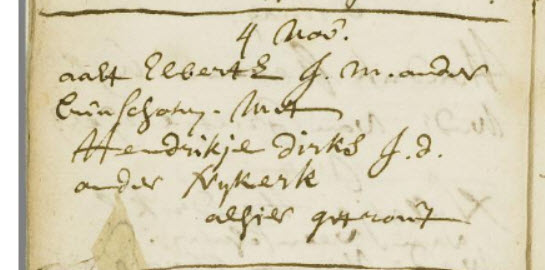 4 Nov.
aalt Elberts J. M. onder
Lunschoten. Met
Hendrikje dirks J. d.
onder Nykerk
alhier getrout